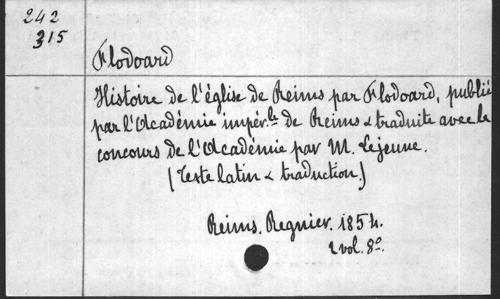 242
315
Flodoard
Histoire de l'église de Reims par Flodoard, publiée
par l'Académie impér.le de Reims & traduite avec le
concours de l'Académie par M. Lejeune.
(Texte latin & traduction.)
Reims. Regnier. 1854.
2 vol. 8º.